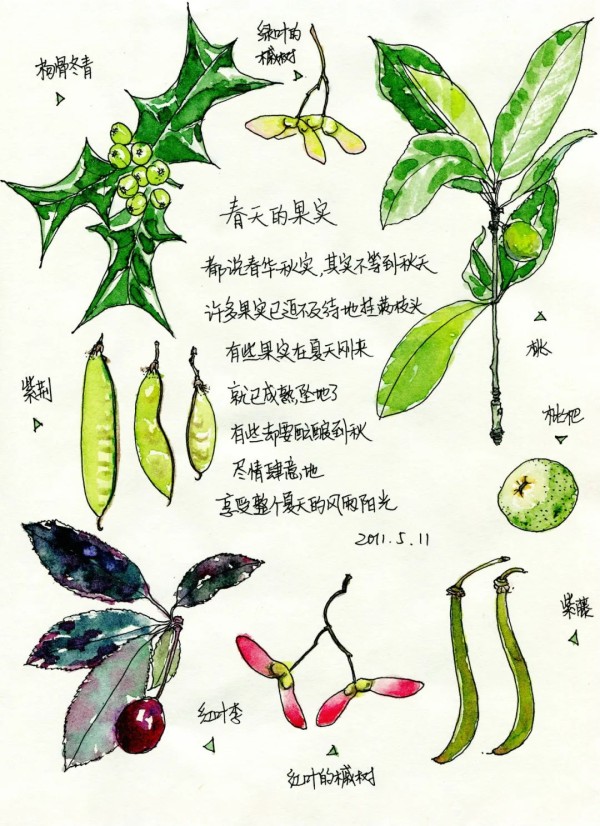 枸骨冬青
绿叶的
槭树
春天的果实
都说春华秋实,其实不等到秋天
许多果实已迫不及待地挂满枝头
有些果实在夏天刚来
就已成熟,坠地了
有些却要酝酿到秋
尽情肆意地
享受整个夏天的风雨阳光
2011.5.11
桃
紫荆
枇杷
紫藤
红叶李
红叶的槭树